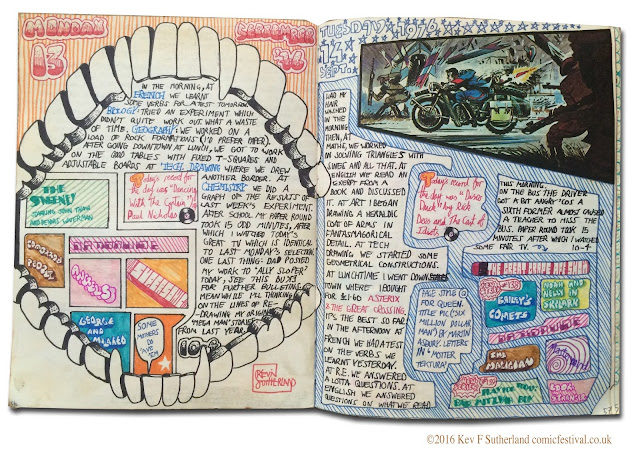 MONDAY
SEPTEMBER
13
'76
IN THE MORNING, AT
FRENCH WE LEARNT
SOME VERBS FOR A TEST TOMORROW.
BIOLOGY: TRIED AN EXPERIMENT WHICH
DIDN'T QUITE WORK OUT WHAT A WASTE
OF TIME. GEOGRAPHY: WE WORKED ON A
LOAD OF ROCK FORMATIONS (I'D PREFER PAPER)
AFTER GOING DOWNTOWN AT LUNCH, WE GOT TO WORK
ON THE GOOD TABLES WITH FIXED T-SQUARES AND
ADJUSTABLE BOARDS AT TECH DRAWING WHERE WE DREW
ANOTHER BORDER. AT
CHEMISTRY WE DID A
GRAPH OF THE RESULTS OF
LAST WEEK'S EXPERIMENT.
AFTER SCHOOL MY PAPER ROUND
TOOK 15 ODD MINUTES, AFTER
WHICH I WATCHED TODAY'S
GREAT TV WHICH IS IDENTICAL
TO LAST MONDAY'S SELECTION.
ONE LAST THING: DAD POSTED
MY WORK TO 'ALLY SLOPER'
TODAY, SEE THIS BUDGY
FOR FURTHER BULLETINS.
MEANWHILE I'LL THINKING
ON THE LINES OF RE-
-DRAWING MY ORIGINAL
'MEGA MAN' STORIES
FROM LAST YEAR.
Today's record for
the day was "Dancing
With The Captain" by
Paul Nicholas
THE SWEENEY
STARRING JOHN THAW
AND DENNIS WATERMAN
GEORGE
AND MILDRED
SOME
MOTHERS
DO
'AVE
'EM
KEVIN
SUTHERLAND
TUESDAY
1976
SEPT
I HAD MY
HAIR
WASHED
IN THE
MORNING
THEN, AT
MATHS, WE WORKED
IN SOLVING TRIANGLES WITH
SINES AND ALL THAT, AT
ENGLISH WE READ AN
EXCEPT FROM A
BOOK AND DISCUSSED
IT. AT ART I BEGAN
DRAWING A HERALDIC
COAT OF ARMS IN
FANTASMAGORICAL
DETAIL. AT TECH
DRAWING WE STARTED SOME
GEOMETRICAL CONSTRUCTIONS.
AT LUNCHTIME I WENT DOWN
TOWN WHERE I BOUGHT
FOR £1·60 ASTERIX
& THE GREAT CROSSING.
IT'S THE BEST SO FAR.
IN THE AFTERNOON AT
FRENCH WE HAD A TEST
ON THE VERBS WE
LEARNT YESTERDAY.
AT R.E. WE ANSWERED
A LOTTA QUESTIONS. AT
ENGLISH WE ANSWERED
QUESTIONS ON WHAT WE READ.
Today's record for
the day was "Disco
Duck" by Rick
Dees and The Cast of
Idiots
THIS MORNING,
ON THE BUS THE DRIVER
GOT A BIT ANGRY 'COS A
SIXTH FORMER ALMOST CAUSED
A TEACHER TO MISS THE
BUS. PAPER ROUND TOOK 15
MINUTES AFTER WHICH I WATCHED
SOME FAIR TV. 10-4
PAGE STYLE
FOR QUEEN,
TITLE PIC (SIX
MILLION DOLLAR
MAN) BY MARTIN
ASBURY. LETTERS
IN 'MOTTER
TEKTURA'
BAILEY'S
COMETS
NOAH AND
NELLY IN
SKYLARK
©2016 Kev F Sutherland comicfestival.co.uk